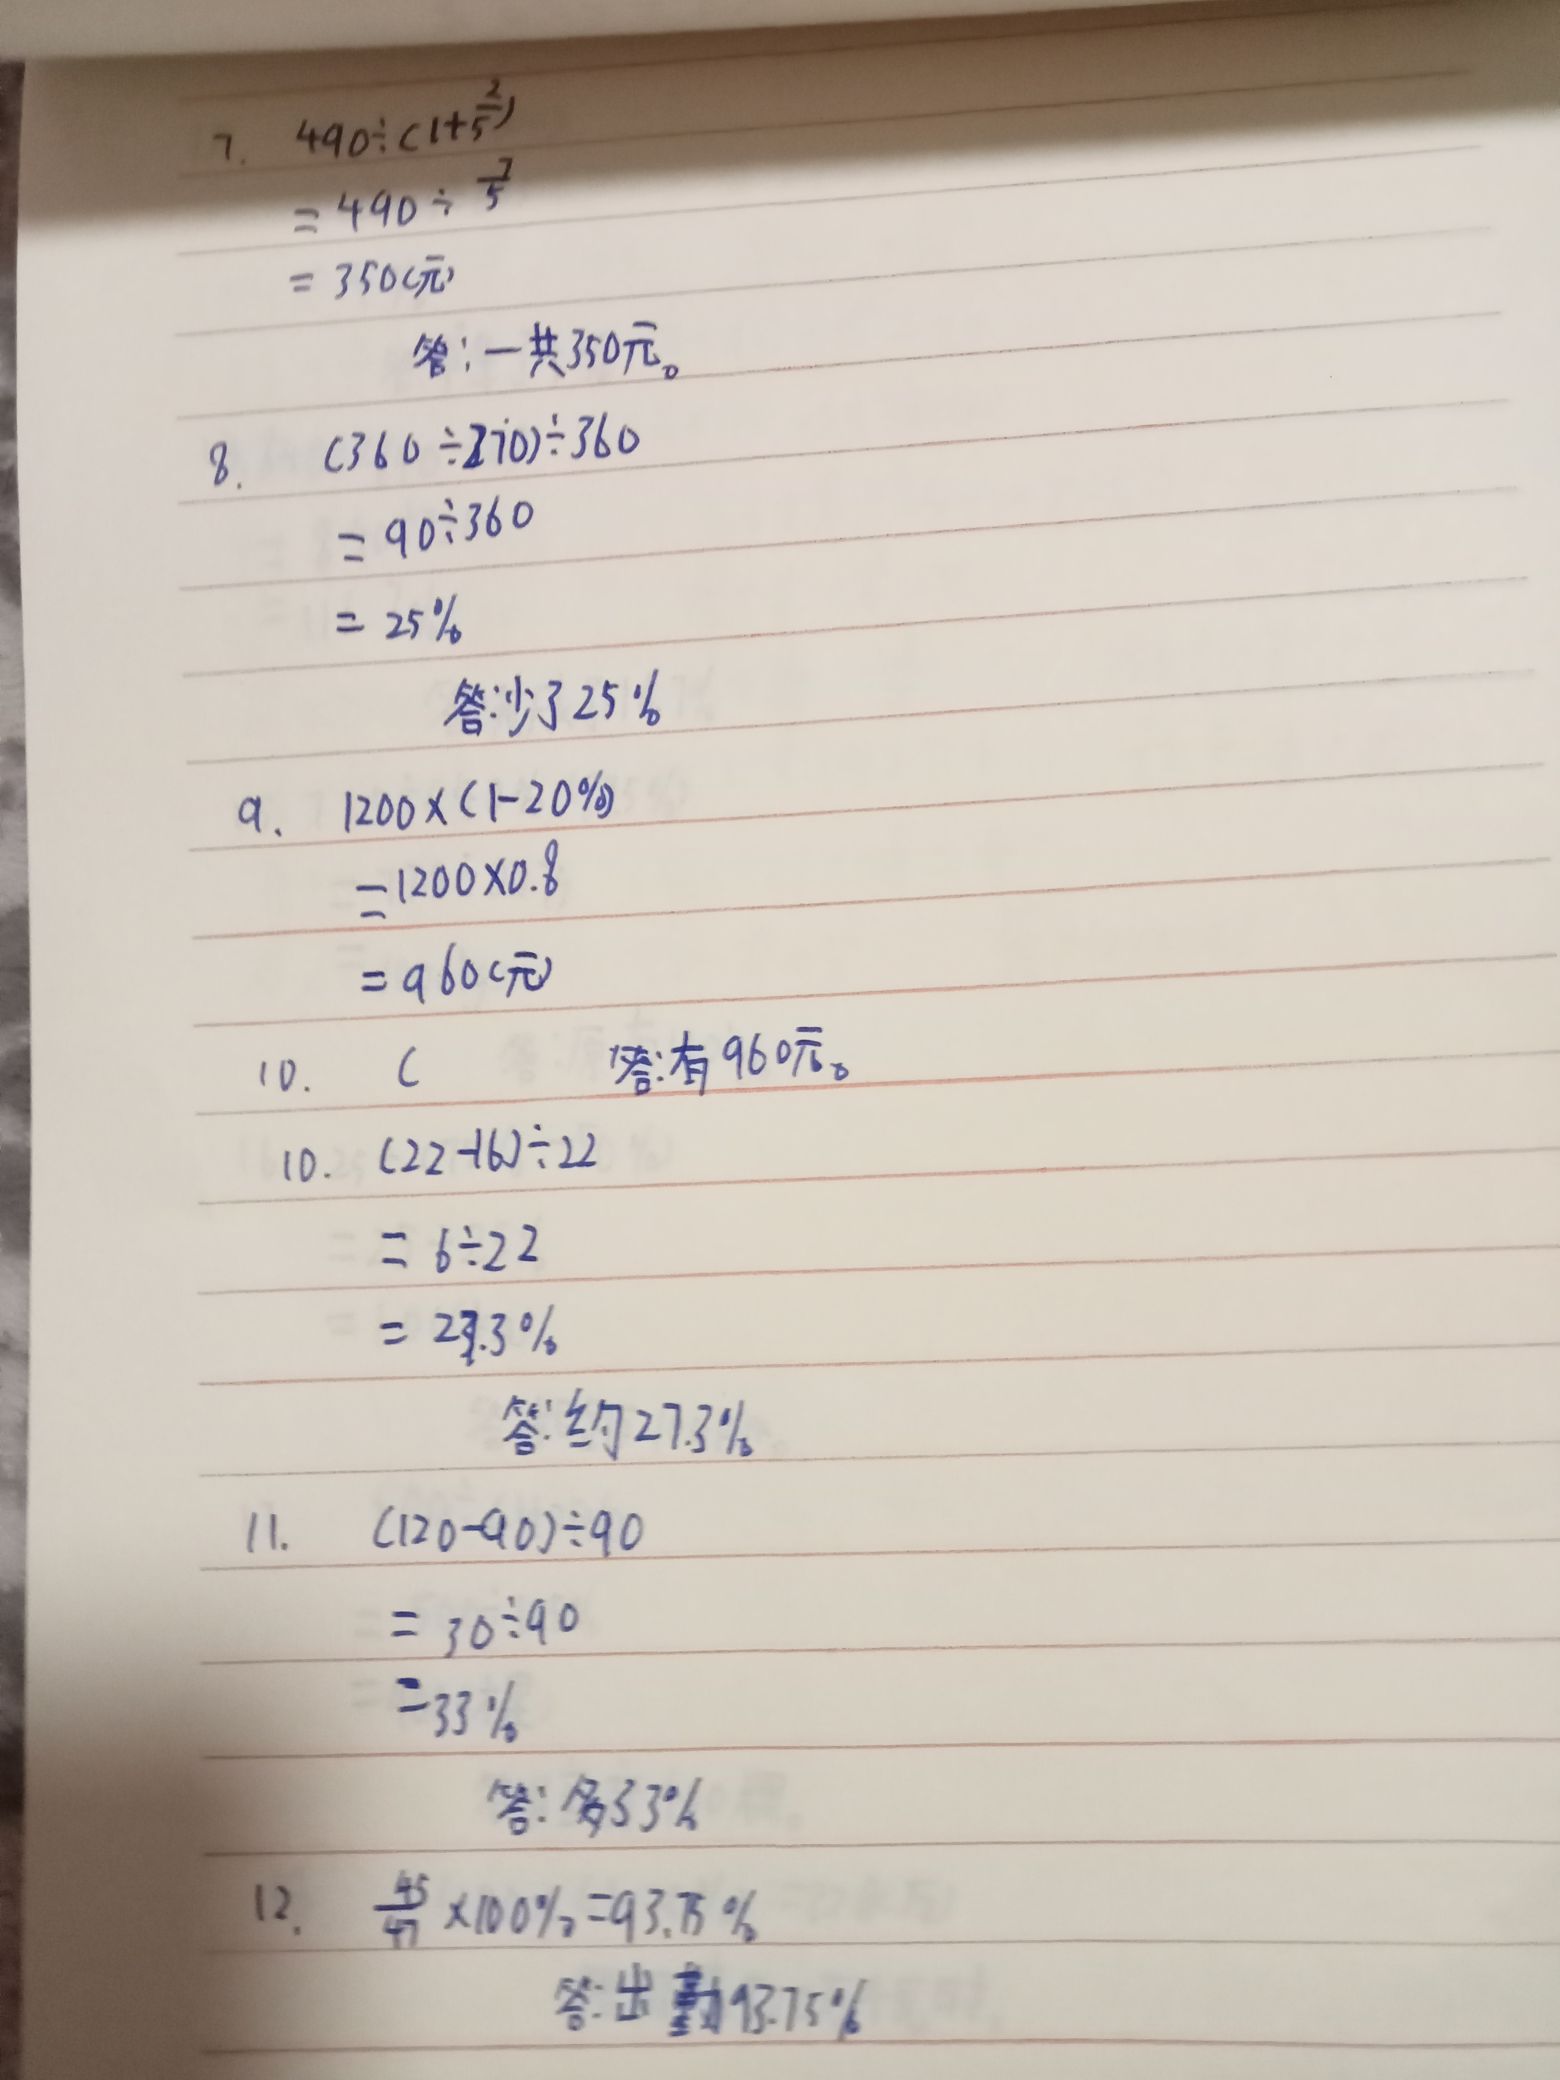 7. 490÷(1+2/5)
=490÷7/5
=350(元)
答:一共350元。
8. (360÷270)÷360
=90÷360
=25%
答:少了25%
9. 1200×(1-20%)
=1200×0.8
=960(元)
10. C 答:有960元。
10. (22-16)÷22
=6÷22
=27.3%
答:约27.3%
11. (120-90)÷90
=30÷90
=33%
答:多33%
12. 45/47×100%=93.75%
答:出勤93.75%